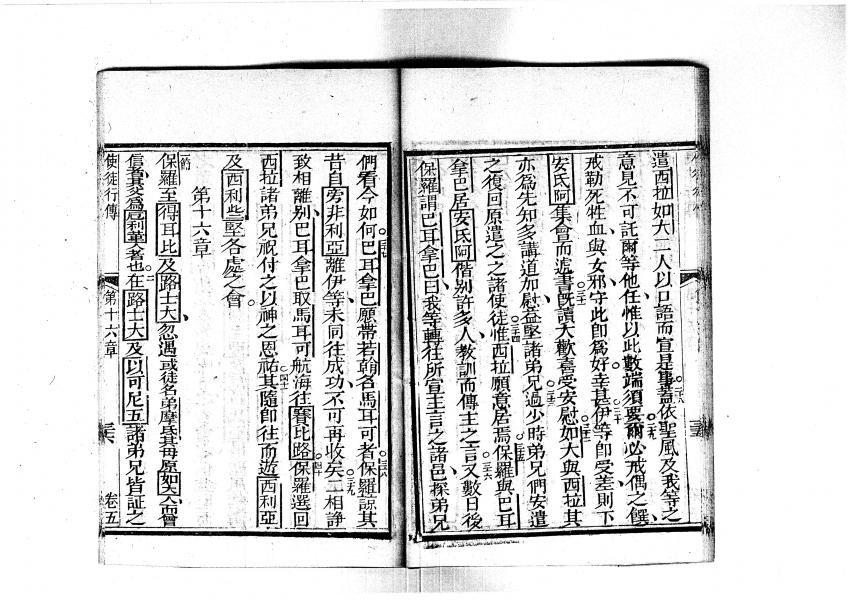 遣西拉如大二人以口語而宣是事蓋依聖風及我等之
意見不可託爾等他任惟以此數端須要爾必戒偶之饌
戒勒死牲血與女邪守此即為好幸甚伊等即受差則下
安氏阿集會而遞書既讀大歡喜受安慰如大與西拉其
亦為先知多講道加慰益堅諸弟兄過少時弟兄們安遣
之復回原遣之之諸使徒惟西拉願意居焉保羅與巴耳
拿巴居安氏阿偕別許多人教訓而傳主之言又數日後
保羅謂巴耳拿巴曰我等轉往所宣主言之諸邑探弟兄
們看今如何巴耳拿巴願帶若翰名馬耳可者保羅諒其
昔自旁非利亞離伊等未同往成功不可再收矣二相諍
致相離別巴耳拿巴取馬耳可航海往賽比路保羅選回
西拉諸弟兄祝付之以神之恩祐其隨即往而遊西利亞
及西利些堅各處之會
第十六章
保羅至得耳比及路士大忽遇或徒名弟摩氐其母原如大人而會
信者其父為厄利革人者也在路士大及以可尼五諸弟兄皆証之
使徒行傳
第十六章
卷五